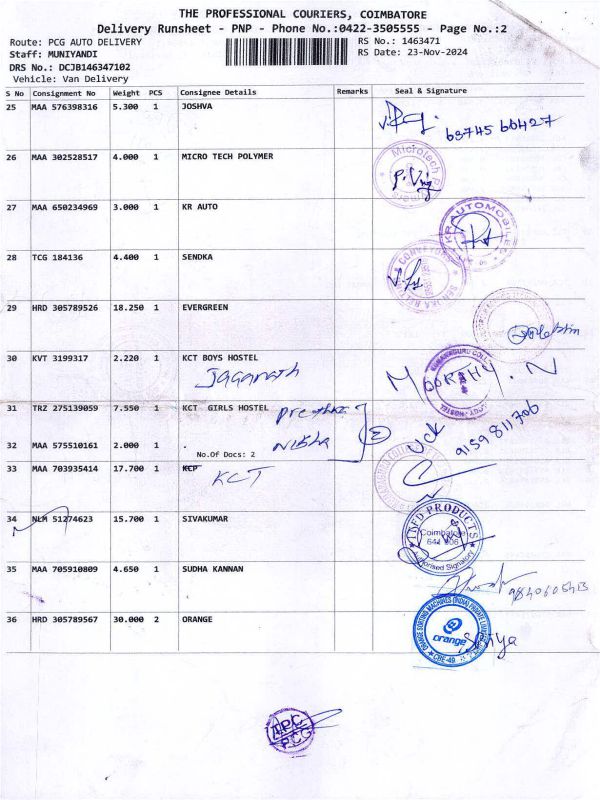 THE PROFESSIONAL COURIERS, COIMBATORE
Delivery Runsheet - PNP - Phone No.:0422-3505555 - Page No.:2
Route: PCG AUTO DELIVERY
RS No.: 1463471
Staff: MUNIYANDI
RS Date: 23-Nov-2024
DRS No.: DCJB146347102
Vehicle: Van Delivery
S No Consignment No Weight PCS Consignee Details Remarks Seal & Signature
25 MAA 576398316 5.300 1 JOSHVA
26 MAA 302528517 4.000 1 MICRO TECH POLYMER
Microtech
27 MAA 650234969 3.000 1 KR AUTO
KR AUTOMOBILES
28 TCG 184136 4.400 1 SENDKA
CONVEYORS
29 HRD 305789526 18.250 1 EVERGREEN
30 KVT 3199317 2.220 1 KCT BOYS HOSTEL
Jaganath
MOORTHY. N
31 TRZ 275139059 7.550 1 KCT GIRLS HOSTEL
9159811706
32 MAA 575510161 2.000 1 . Nisha
No.Of Docs: 2
2
33 MAA 703935414 17.700 1 KCP
KCT
34 NLM 51274623 15.700 1 SIVAKUMAR
PRODUCTS
Coimbatore
Authorised Signatory
35 MAA 705910809 4.650 1 SUDHA KANNAN
36 HRD 305789567 30.000 2 ORANGE
ORANGE SORTING MACHINES (INDIA) PRIVATE LIMITED
orange
CBE-49
APC
PCG